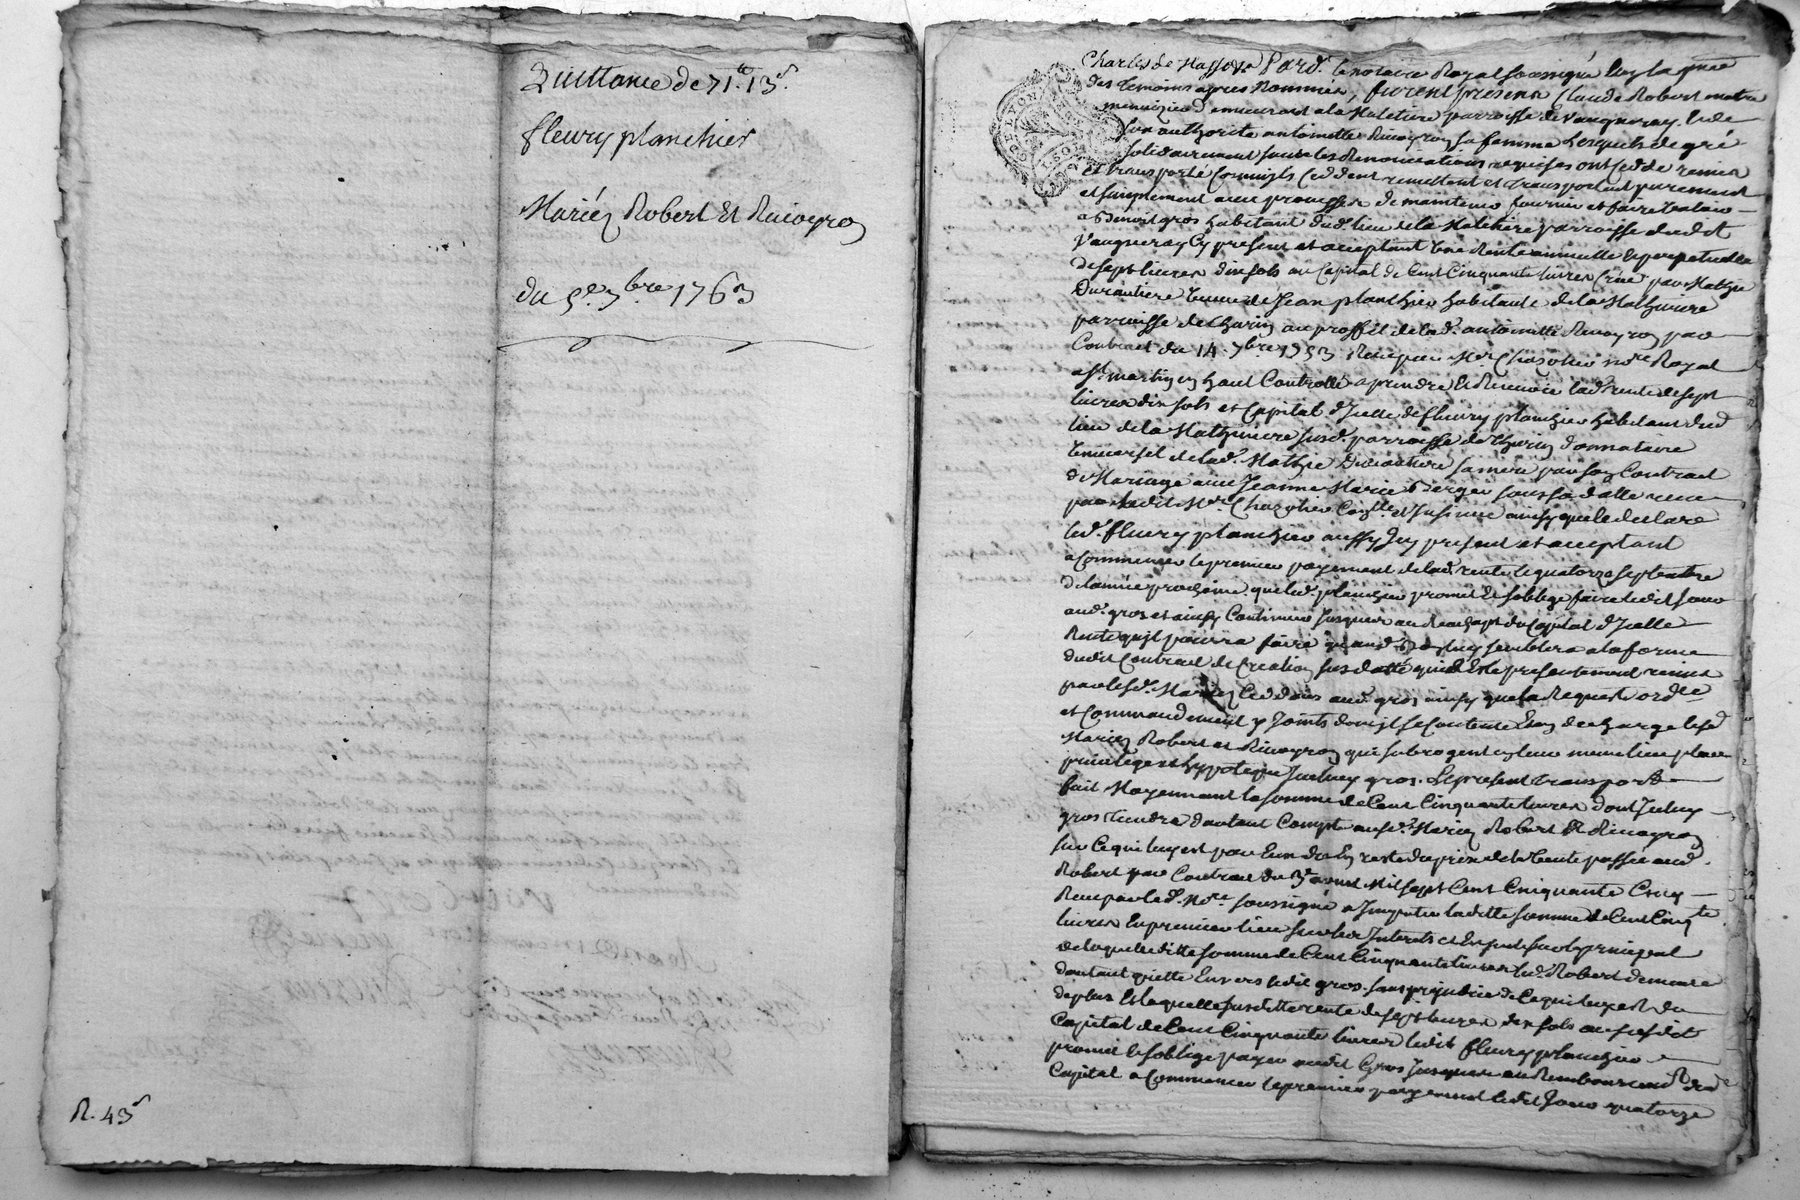 Quittance de 71ᵗᵗ 13ˢ
fleury planchier
Mariez Robert Et Rivoyron
du 5e. 7bre 1763
R. 43ˢ
Par dt. le notaire Royal soussigné
des temoins apres Nommés, furent presens Claude Robert maitre
demeurant a la Maletiere parroisse de Vaugneray. Et de
son authorité antoinette Rivoyron sa femme Lesquels de gré
solidairement sous les Renonciations requises ont cedé remis
et transporté Comm'ils Ceddent remettent et transportent purement
et simplement avec promesse de maintenir fournir et faire valoir
a Benoit gros habitant dud. lieu de la Maletiere parroisse dudit
Vaugneray Cy present et acceptant Une Rente annuelle et perpetuelle
de sept livres dix sols au Capital de Cent Cinquante livres Créé par Mathie
Durantiere veuve de Jean planchier habitante de la Mathiviere
parroisse de thurin au proffit de lad. antoinette Rivoyron par
Contract du 14. 7bre 1753 Reçu par Me. Chazotier nore Royal
a St. martin en haut Controllé a prendre Et Recevoir lad. rente de sept
livres dix sols et Capital d'Icelle de fleury planchier habitant dud
lieu de la Mathiviere susd. parroisse de thurin donnataire
Universel de lad. Mathie Durantiere sa mere par son Contract
de Mariage avec Jeanne Marie Berger sous sa datte receu
par ledit Me. Chazotier Conllé et Insinué ainsy que le declare
led. fleury planchier aussy Icy present et acceptant
a Commencer le premier payement de lad. rente le quatorze septembre
de l'année prochaine que led. planchier promet Et s'oblige faire ledit jour
aud. gros et ainsy Continuer jusques au Reachapt du Capital d'Icelle
Rente qu'il pourra faire quand Bon luy semblera a la forme
dudit Contract de Creation sus datté qui a Eté presentement remis
par lesd. Mariez Ceddans aud. gros ainsy que la Requeste ordce
et Commandement y joints dont il se Contente Et en decharge lesd
Mariez Robert et Rivoyron qui subrogent en leur meme lieu place
privilege et hypoteque Iceluy gros. Le present transport
fait Moyennant la somme de Cent Cinquante livres dont Iceluy
gros tiendra d'autant Compte ausd. Mariez Robert Et Rivoyron
sur Ce qui luy est par Eux dû En reste du prix de la Vente passée aud.
Robert par Contract du 3e avril Mil sept Cent Cinquante Cinq
Receu par led. Nore soussigné a Imputer laditte somme de Cent Cinqte
livres En premier lieu sur les Interets et Ensuite sur le principal
de laquelle ditte somme de Cent Cinquante livres led. Robert demeure
d'autant quitte Envers ledit gros. sans prejudice de Ce qui luy est du
de plus Et laquelle susditte rente de sept livres dix sols au susdit
Capital de Cent Cinquante livres ledit fleury planchier
promet Et s'oblige payer audit Gros Jusques au Remboursement dud
Capital a Commencer le premier payement ledit jour quatorze